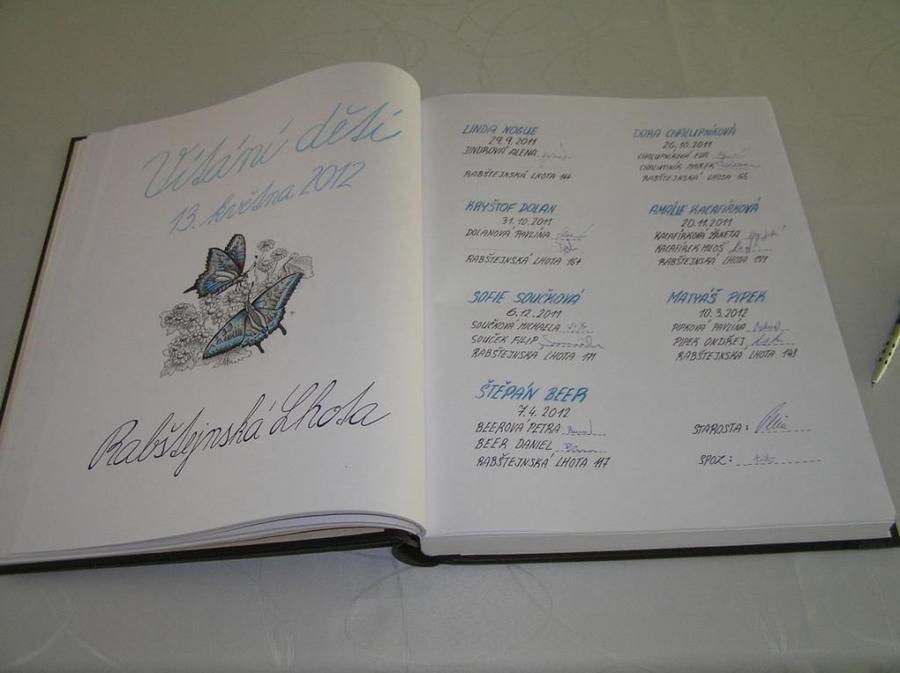 Vítání dětí
13. května 2012
Rabštejnská Lhota
LINDA
29.9.2011
JINDROVÁ ALENA
RABŠTEJNSKÁ LHOTA
DORA CHALUPNÍKOVÁ
26.10.2011
CHALUPNÍKOVÁ EVA
CHALUPNÍK MAREK
RABŠTEJNSKÁ LHOTA
KRYŠTOF DOLAN
31.10.2011
DOLANOVÁ PAVLÍNA
RABŠTEJNSKÁ LHOTA
AMÁLIE KACAFÍRKOVÁ
20.11.2011
KACAFÍRKOVÁ ŽANETA
KACAFÍREK MILOŠ
RABŠTEJNSKÁ LHOTA
SOFIE SOUČKOVÁ
6.12.2011
SOUČKOVÁ MICHAELA
SOUČEK FILIP
RABŠTEJNSKÁ LHOTA
MATYÁŠ PIPEK
10.3.2012
PIPKOVÁ PAVLÍNA
PIPEK ONDŘEJ
RABŠTEJNSKÁ LHOTA 148
ŠTĚPÁN BEER
7.4.2012
BEEROVÁ PETRA
BEER DANIEL
RABŠTEJNSKÁ LHOTA 117
STAROSTA:
SPOZ: